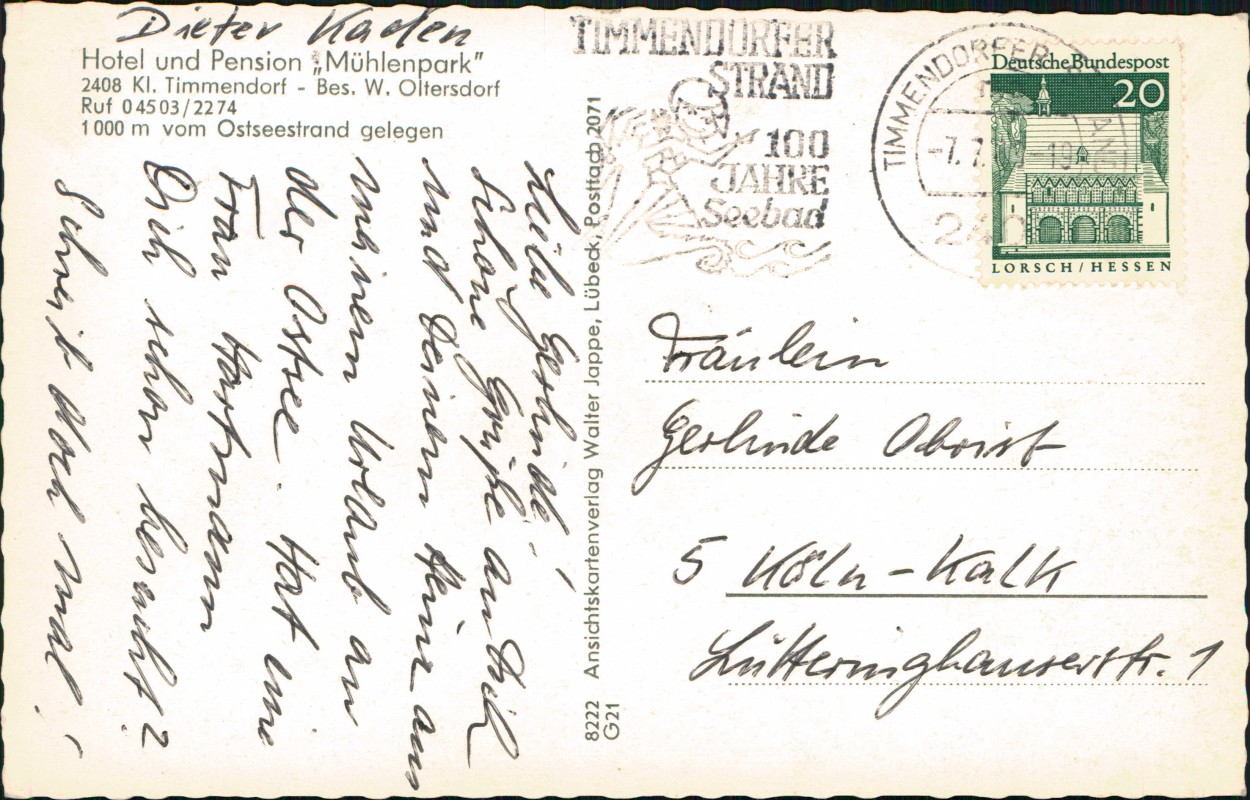 Dieter Kaden
Hotel und Pension „Mühlenpark"
2408 Kl. Timmendorf - Bes. W. Oltersdorf
Ruf 04503/2274
1000 m vom Ostseestrand gelegen
Liebe Gerlinde!
Schöne Grüße an Dich
und Deinem Heinz aus
meinem Urlaub an
der Ostsee. Hat eine
Frau Hartmann
Dich schon besucht?
Schreib doch mal!
8222 Ansichtskartenverlag Walter Jappe, Lübeck, Postfach 2071
G21
TIMMENDORFER
STRAND
100
JAHRE
Seebad
TIMMENDORFER STRAND
-7.7.
Deutsche Bundespost
20
LORSCH/HESSEN
Fräulein
Gerlinde Obrist
5 Köln-Kalk
Lüttringhauserstr. 1